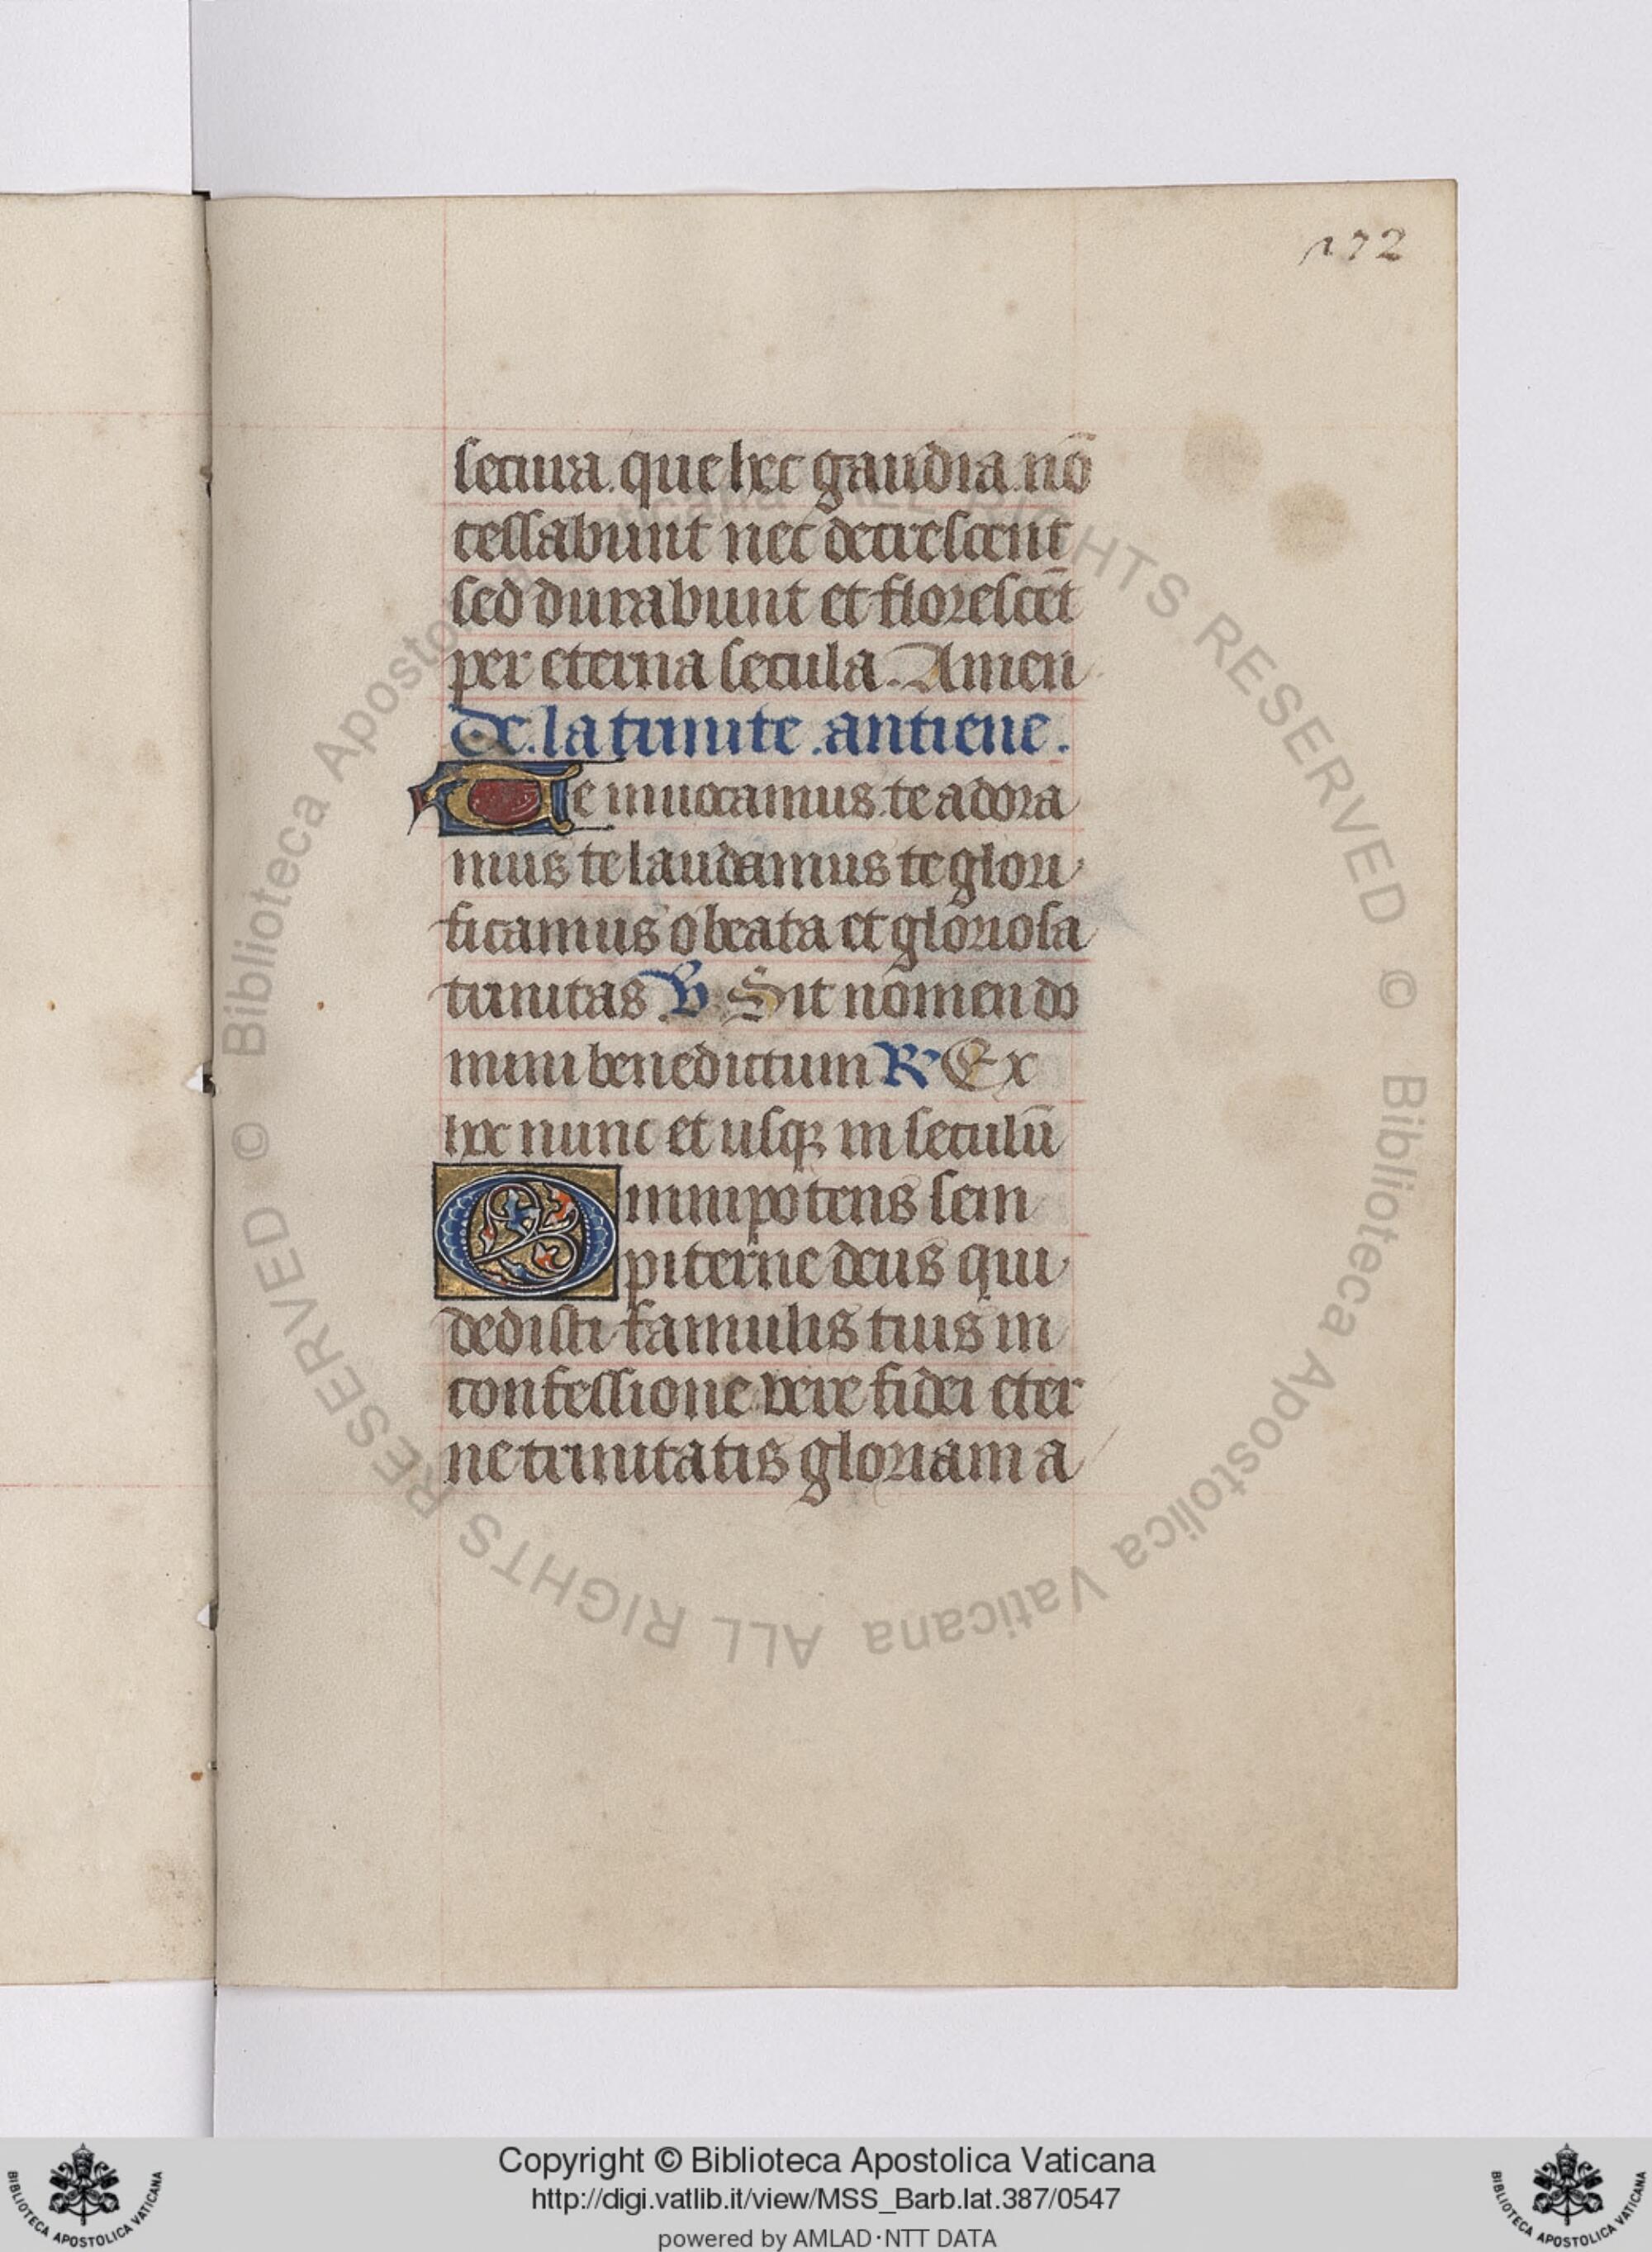 172
secura. que hec gaudia. nō
cessabunt nec decrescent
sed durabunt et florescēt
per eterna secula. Amen
De. la trinite. antiene.
Te inuocamus. te adora
mus te laudamus te glori
ficamus o beata et gloriosa
trinitas ℣ Sit nomen do
mini benedictum ℟ Ex
hoc nunc et usqȝ in seculū
Omnipotens sem
piterne deus qui
dedisti famulis tuis in
confessione vere fidei eter
ne trinitatis gloriam a
© Biblioteca Apostolica Vaticana ALL RIGHTS RESERVED © Biblioteca Apostolica Vaticana ALL RIGHTS RESERVED
Copyright © Biblioteca Apostolica Vaticana
http://digi.vatlib.it/view/MSS_Barb.lat.387/0547
powered by AMLAD·NTT DATA
BIBLIOTECA APOSTOLICA VATICANA
BIBLIOTECA APOSTOLICA VATICANA